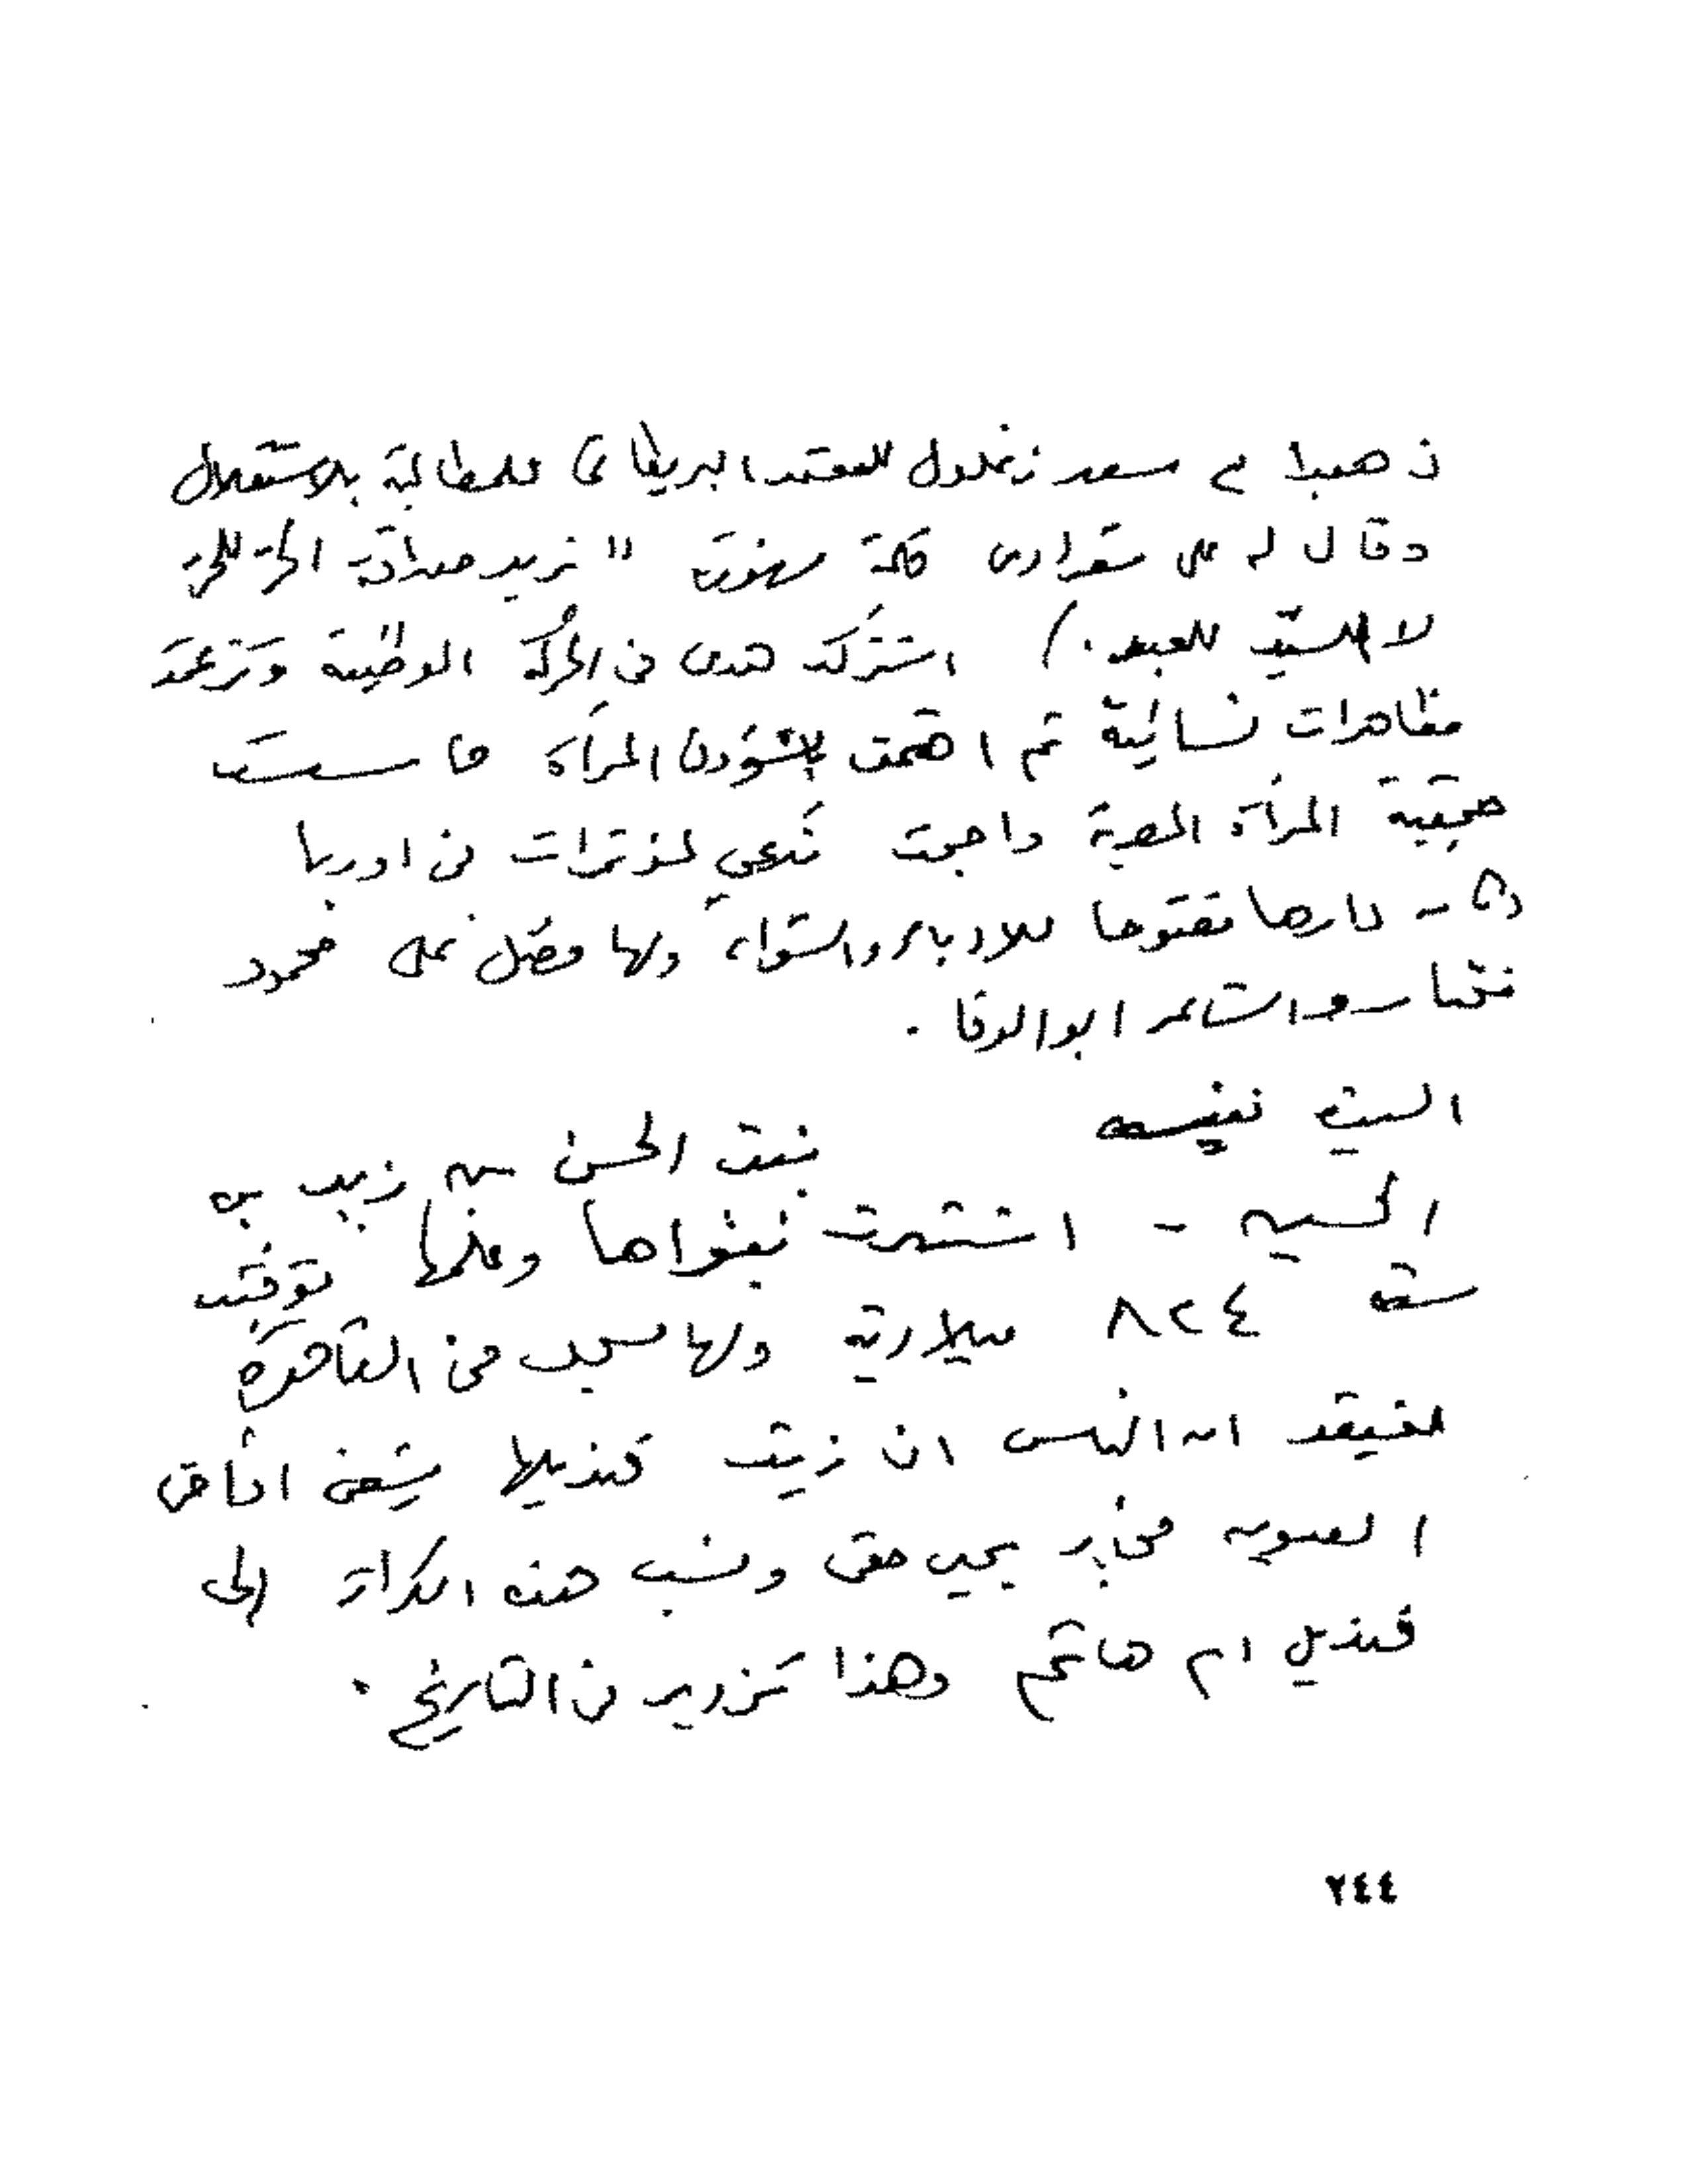 ذهبا مع سعد زغلول للمعتمد البريطاني للمطالبة بالاستقلال
وقال له على شعراوى كلمة مشهورة "نريد صداقة الحر للحر
لا السيد للعبد.) اشتركت هدى فى الحركة الوطنية وتزعمت
مظاهرات نسائية ثم اهتمت بشؤون المرأة فاسست
جمعية المرأة المصرية واصبحت تدعى لمؤتمرات فى اوربا
وكان دارها مفتوحا للادباء والشعراء ولها فضل على محمود
مختار والشاعر ابو الوفا .
الست نفيسه بنت الحسن بن زيد بن
الحسين - اشتهرت بتقواها وعلمها توفيت
سنة ٨٢٤ ميلادية ولها مسجد فى القاهرة
اعتقد الناس ان زيت قنديلها يشفى امراض
العيون فجاء يحيى حقى ونسب هذه الكرامة الى
قنديل ام هاشم وهذا تزوير فى التاريخ .
٢٤٤